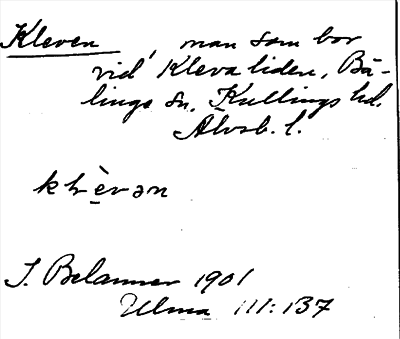 Kleven, man som bor
vid Klevaliden, Bä-
linge sn. Kullings hd.
Älvsb. l.
klèvən
S. Belanner 1901
Ulma 111:137